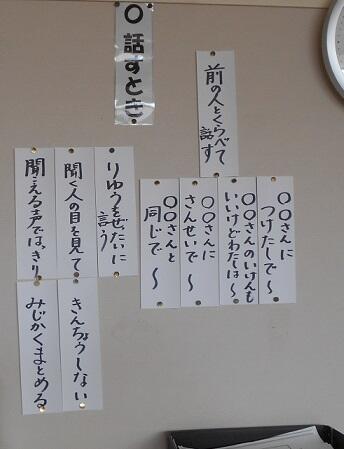 ○ 話すとき
前の人とくらべて
話す
○○さんに
つけたしで～
○○さんのいけんも
いいけどわたしは～
○○さんに
さんせいで～
○○さんと
同じで～
りゆうをぜったいに
言う
聞く人の目を見て
聞こえる声ではっきり
きんちょうしない
みじかくまとめる